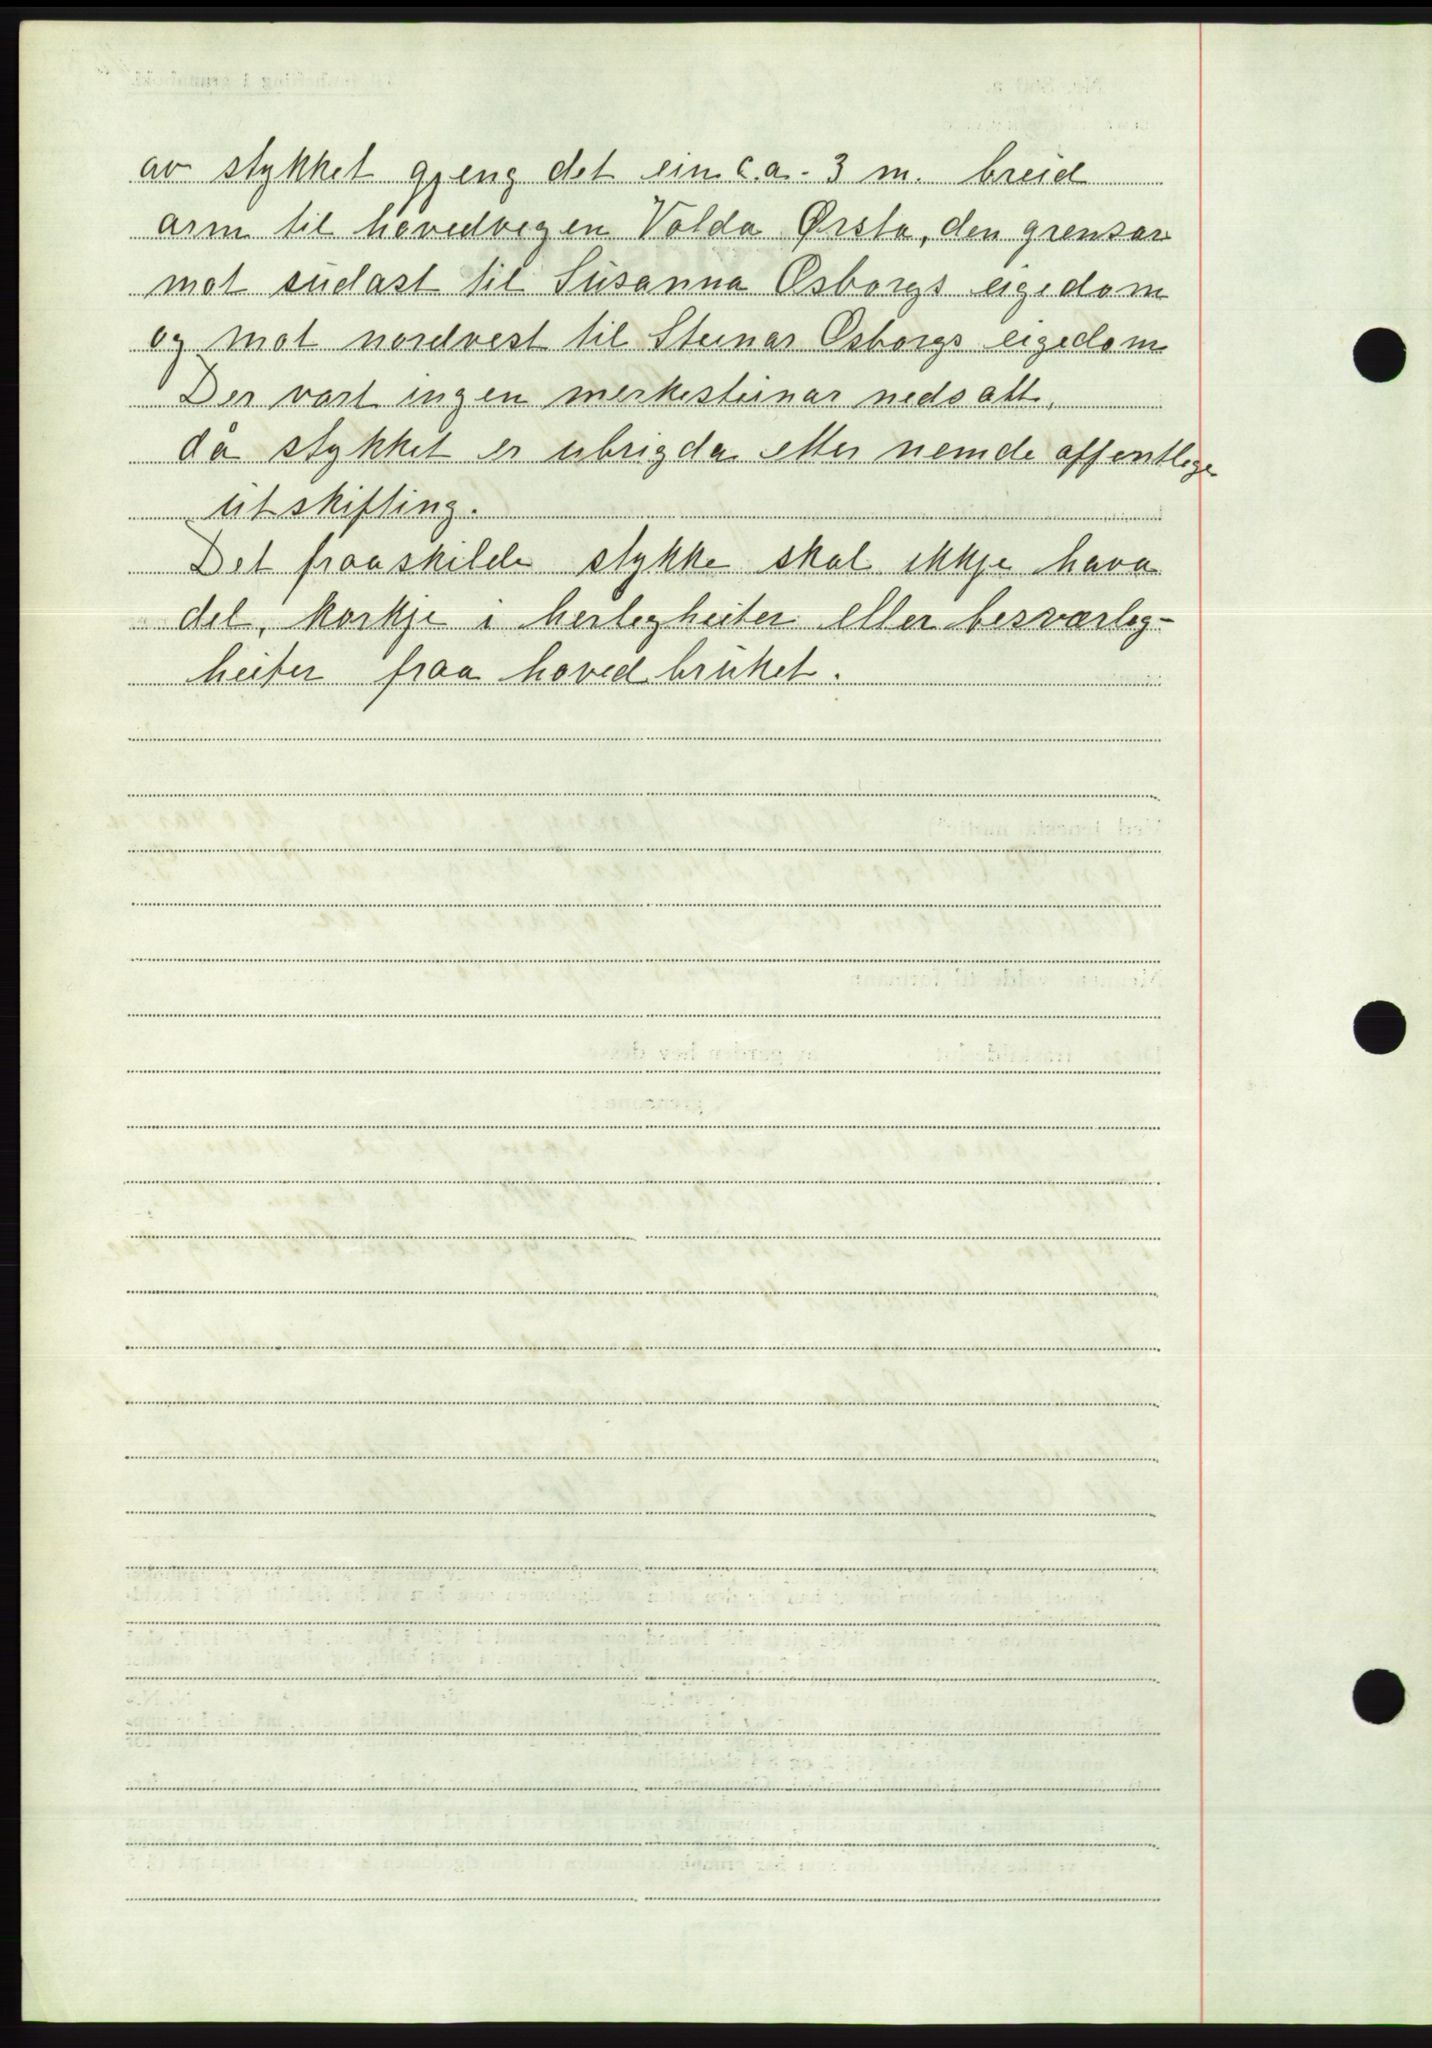 av stykket gjeng det ein c.a. 3 m. breid
arm til hovedvegen Volda Ørsta, den grensar
mot sudast til Susanna Osborgs eigedom
og mot nordvest til Steinar Osborgs eigedom
Der vart ingen merkesteinar nedsatt,
då stykket er ubrigda etter nemde offentlege
utskifting.
Det fraaskilde stykke skal ikkje hava
del, korkje i herlegheiter eller besværleg-
heiter fraa hovedbruket.